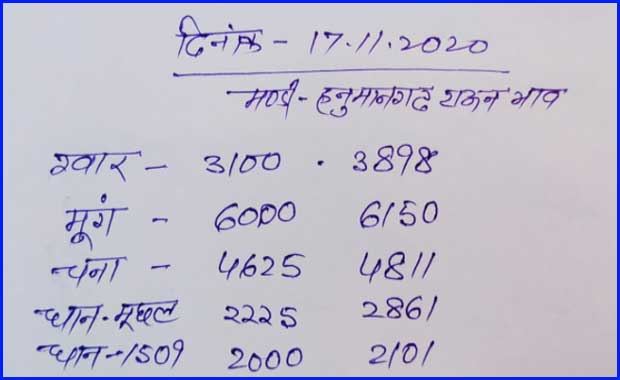 दिनांक - 17.11.2020
मण्डी - हनुमानगढ़ टाऊन भाव
ग्वार - 3100 . 3898
मूगं - 6000 6150
चना - 4625 4811
धान-मूछल 2225 2861
धान-1509 2000 2101